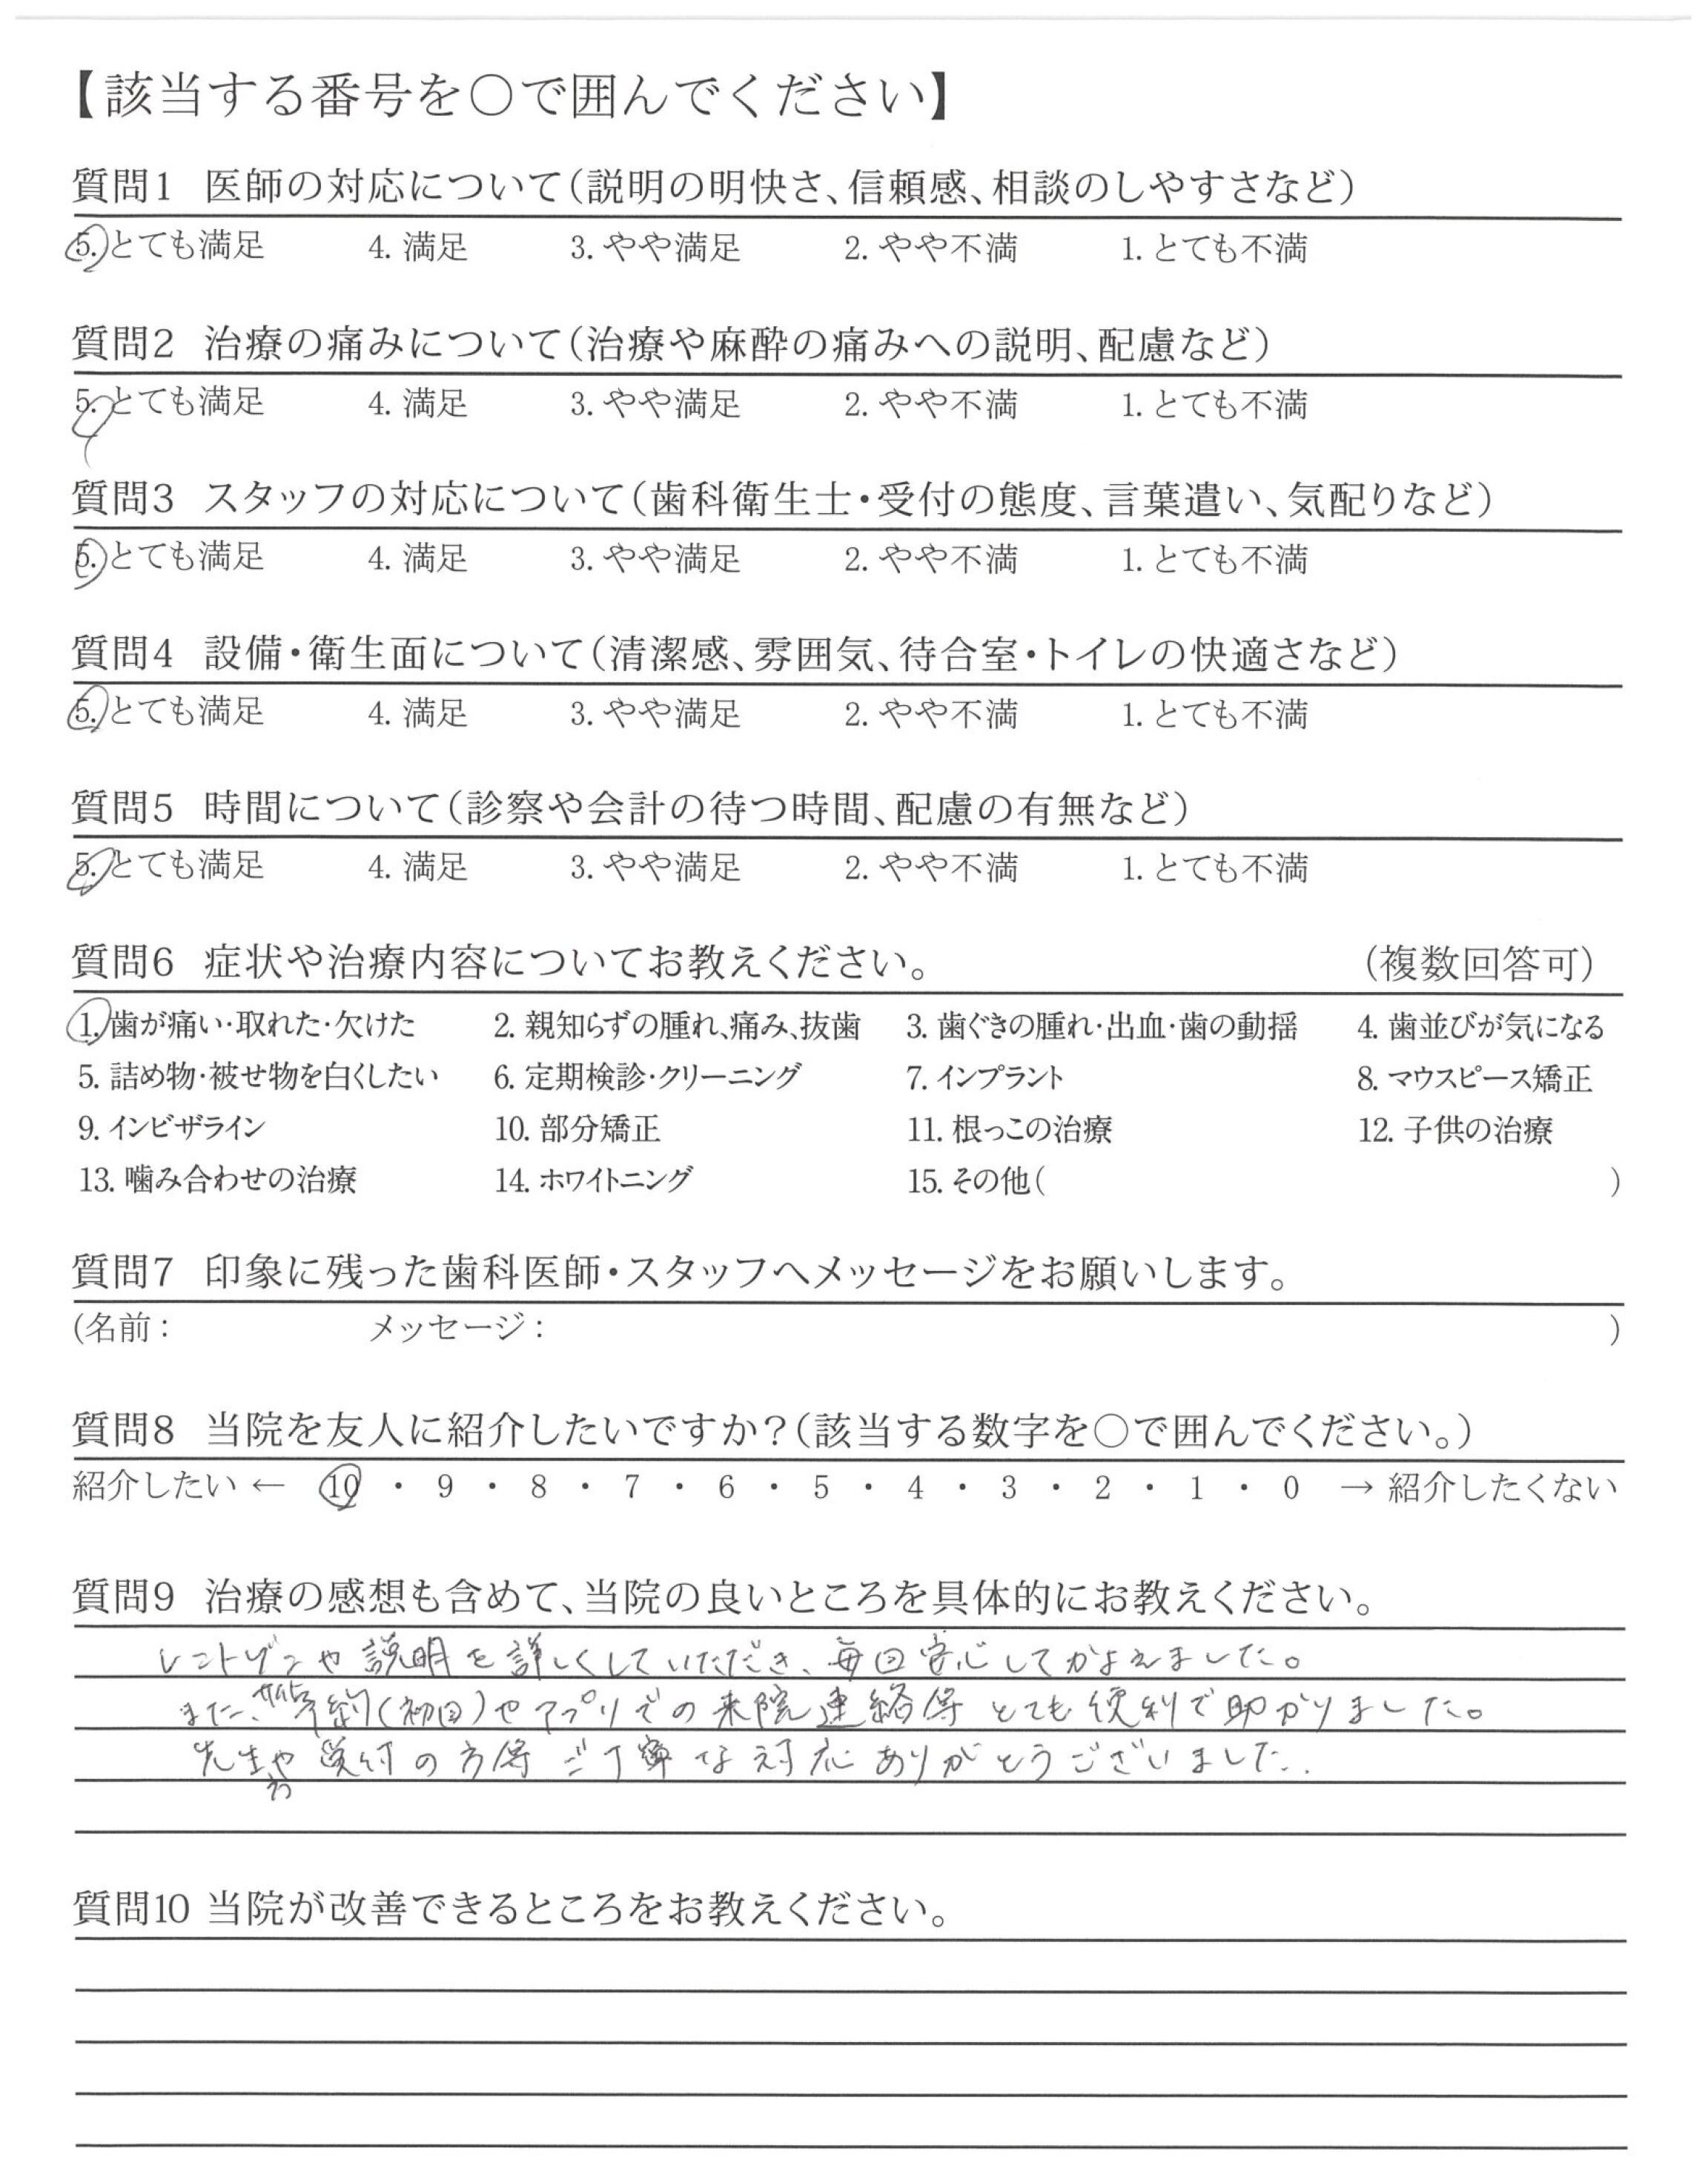 【該当する番号を○で囲んでください】
質問1 医師の対応について(説明の明快さ、信頼感、相談のしやすさなど)
5. とても満足 4. 満足 3. やや満足 2. やや不満 1. とても不満
質問2 治療の痛みについて(治療や麻酔の痛みへの説明、配慮など)
5. とても満足 4. 満足 3. やや満足 2. やや不満 1. とても不満
質問3 スタッフの対応について(歯科衛生士・受付の態度、言葉遣い、気配りなど)
5. とても満足 4. 満足 3. やや満足 2. やや不満 1. とても不満
質問4 設備・衛生面について(清潔感、雰囲気、待合室・トイレの快適さなど)
5. とても満足 4. 満足 3. やや満足 2. やや不満 1. とても不満
質問5 時間について(診察や会計の待つ時間、配慮の有無など)
5. とても満足 4. 満足 3. やや満足 2. やや不満 1. とても不満
質問6 症状や治療内容についてお教えください。 (複数回答可)
1. 歯が痛い・取れた・欠けた 2. 親知らずの腫れ、痛み、抜歯 3. 歯ぐきの腫れ・出血・歯の動揺 4. 歯並びが気になる
5. 詰め物・被せ物を白くしたい 6. 定期検診・クリーニング 7. インプラント 8. マウスピース矯正
9. インビザライン 10. 部分矯正 11. 根っこの治療 12. 子供の治療
13. 噛み合わせの治療 14. ホワイトニング 15. その他( )
質問7 印象に残った歯科医師・スタッフへメッセージをお願いします。
(名前: メッセージ: )
質問8 当院を友人に紹介したいですか?(該当する数字を○で囲んでください。)
紹介したい ← 10 ・ 9 ・ 8 ・ 7 ・ 6 ・ 5 ・ 4 ・ 3 ・ 2 ・ 1 ・ 0 → 紹介したくない
質問9 治療の感想も含めて、当院の良いところを具体的にお教えください。
レントゲンや説明を詳しくしていただき、毎回安心してかよえました。
また、 予約(初回)やアプリでの来院連絡等 とても便利で助かりました。
先生や 受付の方等 ご丁寧な対応ありがとうございました.
質問10 当院が改善できるところをお教えください。